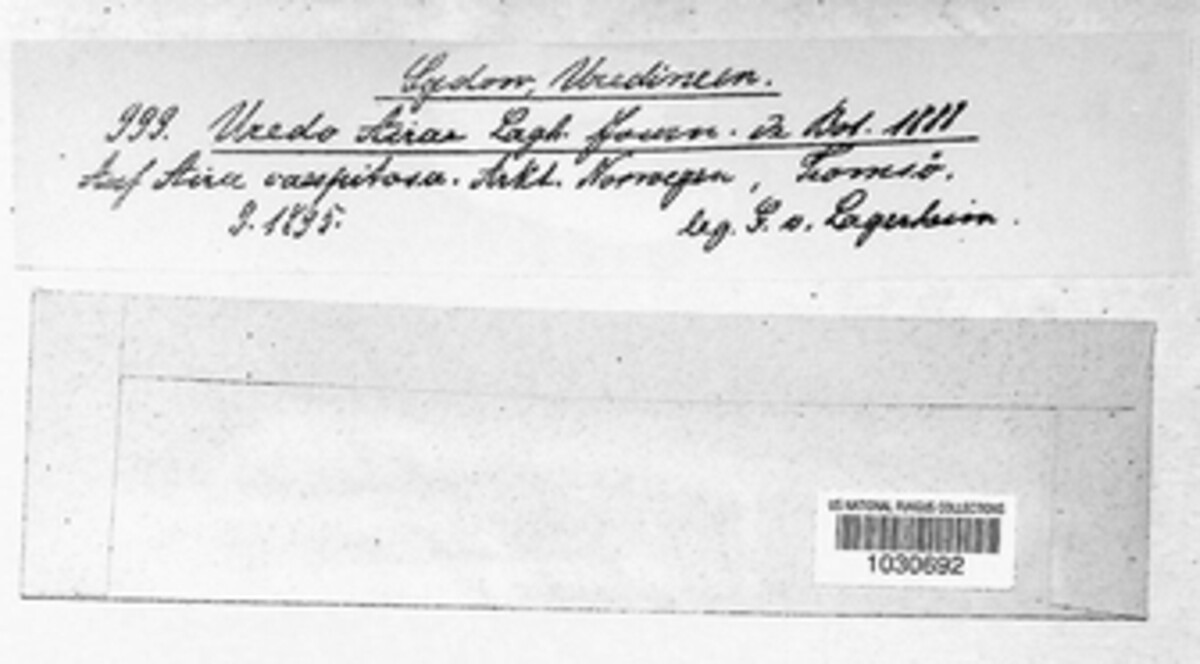 Sydow, Uredineen.
999. Uredo Airae Lagh. Journ. de Bot. 1888
Auf Aira caespitosa. Arkt. Norwegen, Tromsö.
9. 1895. leg. G. v. Lagerheim.
US NATIONAL FUNGUS COLLECTIONS
1030692